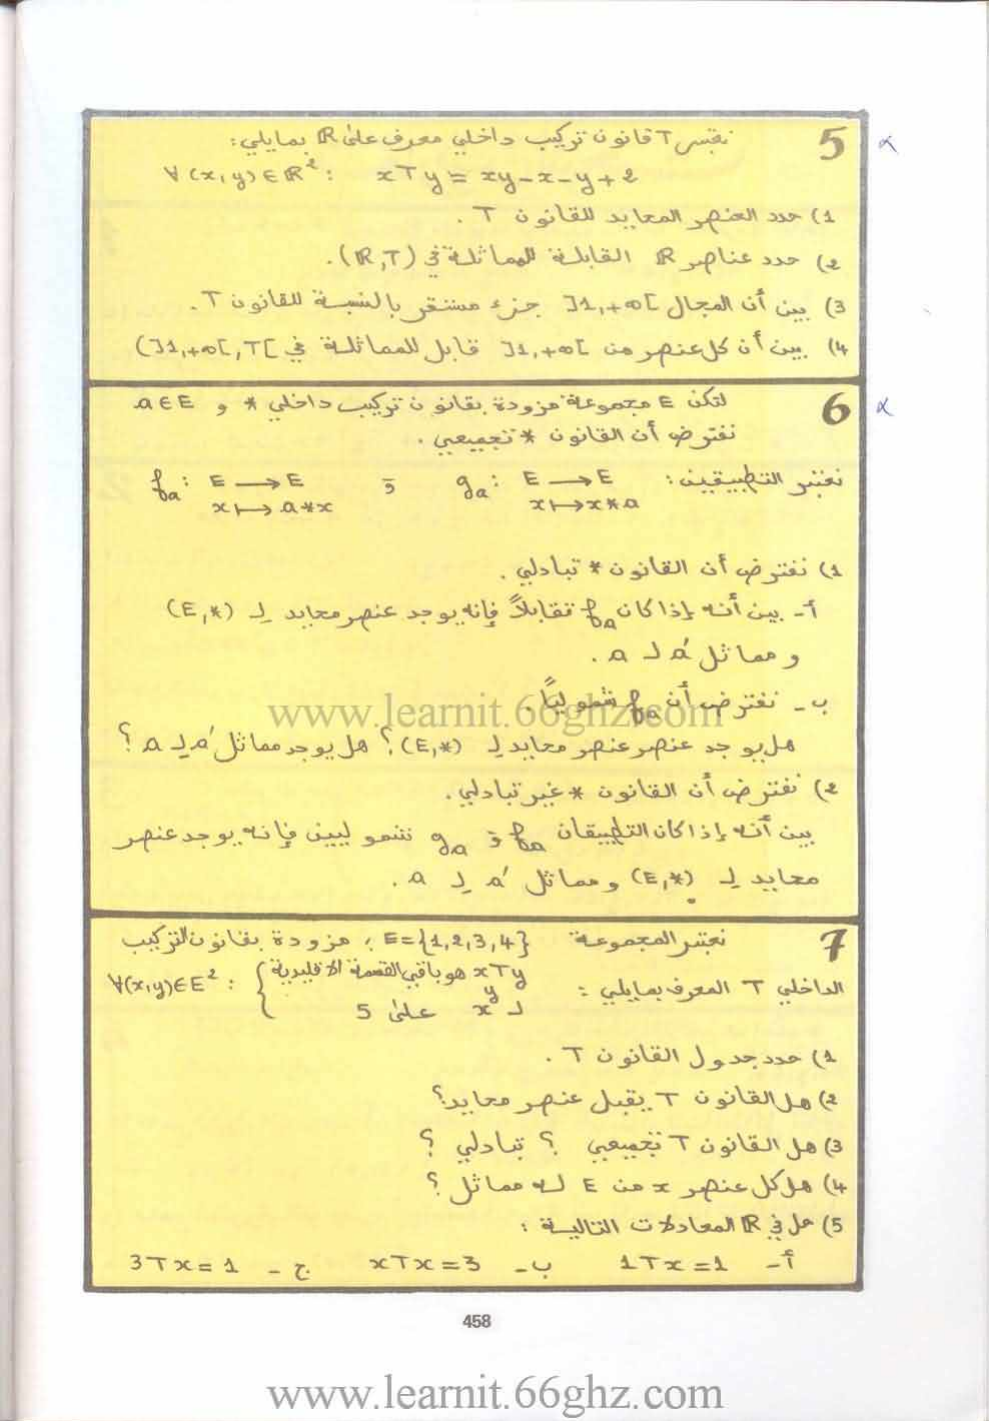 5
نعتبر T قانون تركيب داخلي معرف على ℝ بمايلي:
∀(x,y)∈ℝ²: xTy = xy-x-y+2
1) حدد العنصر المحايد للقانون T.
2) حدد عناصر ℝ القابلة للمماثلة في (ℝ,T).
3) بين أن المجال ]1,+∞[ جزء مستقر بالنسبة للقانون T.
4) بين أن كل عنصر من ]1,+∞[ قابل للمماثلة في (]1,+∞[,T[
6
لتكن E مجموعة مزودة بقانون تركيب داخلي * و a∈E
نفترض أن القانون * تجميعي.
نعتبر التطبيقين: gₐ: E⟶E و fₐ: E⟶E
x⟼x*a x⟼a*x
1) نفترض أن القانون * تبادلي.
أ- بين أنه إذا كان fₐ تقابلاً فإنه يوجد عنصر محايد لـ (E,*)
و مماثل a' لـ a.
ب- نفترض أن fₐ شموليًا.
هل يوجد عنصر عنصر محايد لـ (E,*)؟ هل يوجد مماثل a' لـ a؟
2) نفترض أن القانون * غير تبادلي.
بين أنه إذا كان التطبيقان fₐ و gₐ شموليين فإنه يوجد عنصر
محايد لـ (E,*) و مماثل a' لـ a.
7
نعتبر المجموعة E={1,2,3,4} ; مزودة بقانون التركيب
الداخلي T المعرف بمايلي : ∀(x,y)∈E² : { xTy هو باقي القسمة الاقليدية
لـ x^y على 5
1) حدد جدول القانون T.
2) هل القانون T يقبل عنصر محايد؟
3) هل القانون T تجميعي ؟ تبادلي ؟
4) هل كل عنصر x من E له مماثل ؟
5) حل في ℝ المعادلات التالية :
أ- 1Tx=1 ب- xTx=3 ج- 3Tx=1
458
www.learnit.66ghz.com
www.learnit.66ghz.com